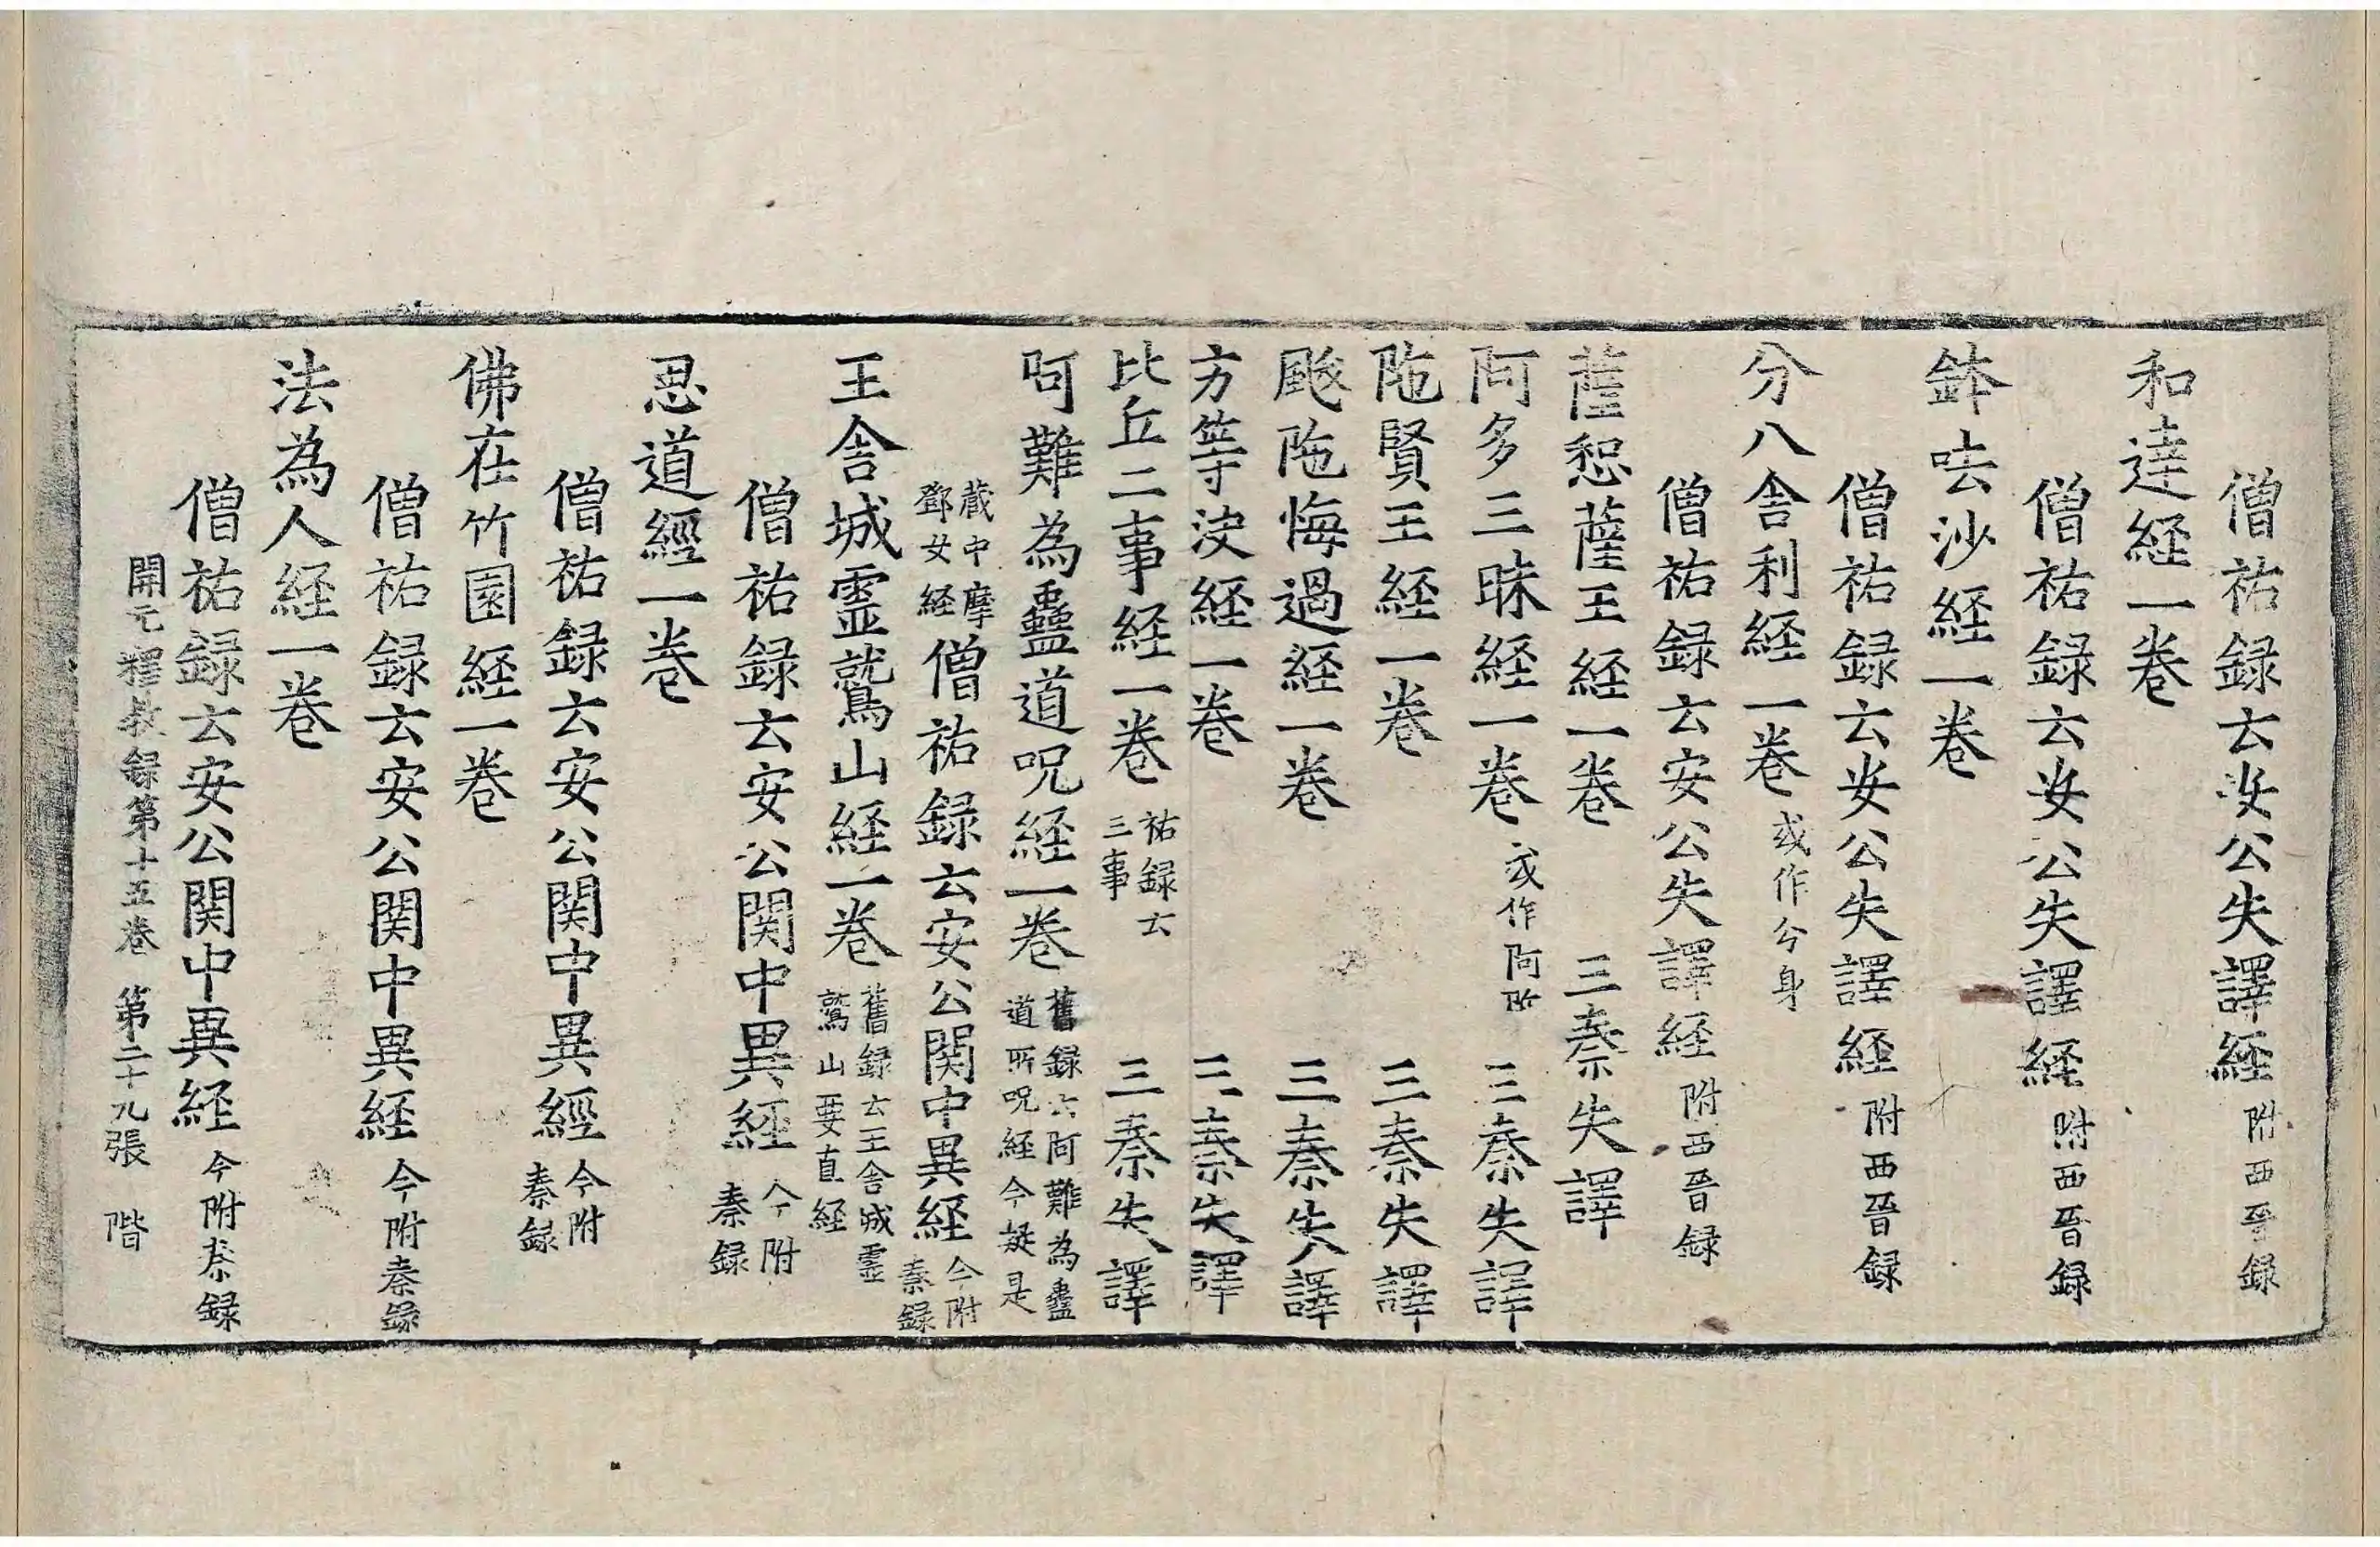 僧祐録云安公失譯経附西晉録
和達経一巻
僧祐録云安公失譯経附西晉録
鉢呿沙経一巻
僧祐録云安公失譯経附西晉録
分八舎利経一巻或作今身
僧祐録云安公失譯経附西晉録
薩恕薩王経一巻 三秦失譯
阿多三昧経一巻或作阿 三秦失譯
陁賢王経一巻 三秦失譯
颰陁悔過経一巻 三秦失譯
方等决経一巻 三秦失譯
比丘二事経一巻祐録云三事 三秦失譯
呵難為蠱道呪経一巻舊録云阿難為蠱道所呪経今疑是
藏中摩鄧女経僧祐録云安公関中異経今附秦録
王舎城霊鷲山経一巻舊録云王舎城霊鷲山要直経
僧祐録云安公関中異経今附秦録
忍道經一巻
僧祐録云安公関中異經今附秦録
佛在竹園経一巻
僧祐録云安公関中異経今附秦録
法為人経一巻
僧祐録云安公関中異経今附秦録
開元釋教録第十五巻 第二十九張 階